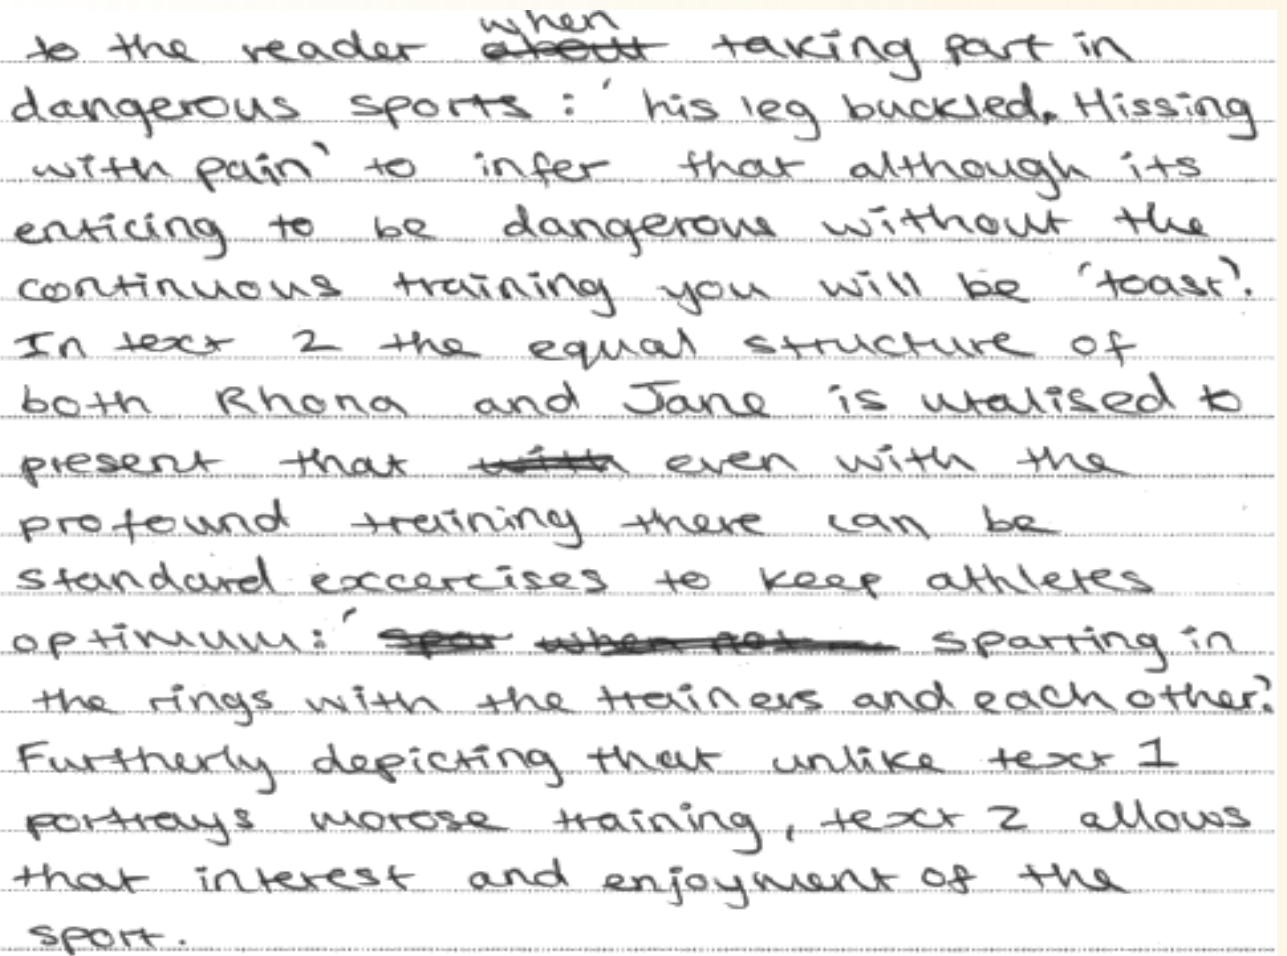 to the reader when about taking part in
dangerous sports : 'his leg buckled. Hissing
with pain' to infer that although its
enticing to be dangerous without the
continuous training you will be 'toast'.
In text 2 the equal structure of
both Rhona and Jane is utalised to
present that with even with the
profound training there can be
standard excercises to keep athletes
optimum: ' spar when not sparring in
the rings with the trainers and each other'.
Furtherly depicting that unlike text 1
portrays morose training, text 2 allows
that interest and enjoyment of the
sport.